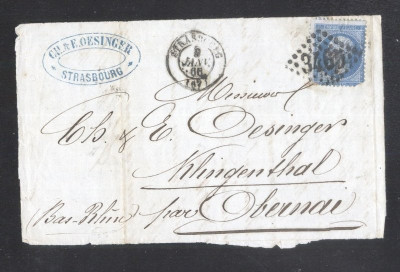 CH. & E. OESINGER
STRASBOURG
STRASBOURG
9
JANV.
66
(67)
Messieurs
Ch. & E. Oesinger
Klingenthal
Bas-Rhin par Obernai